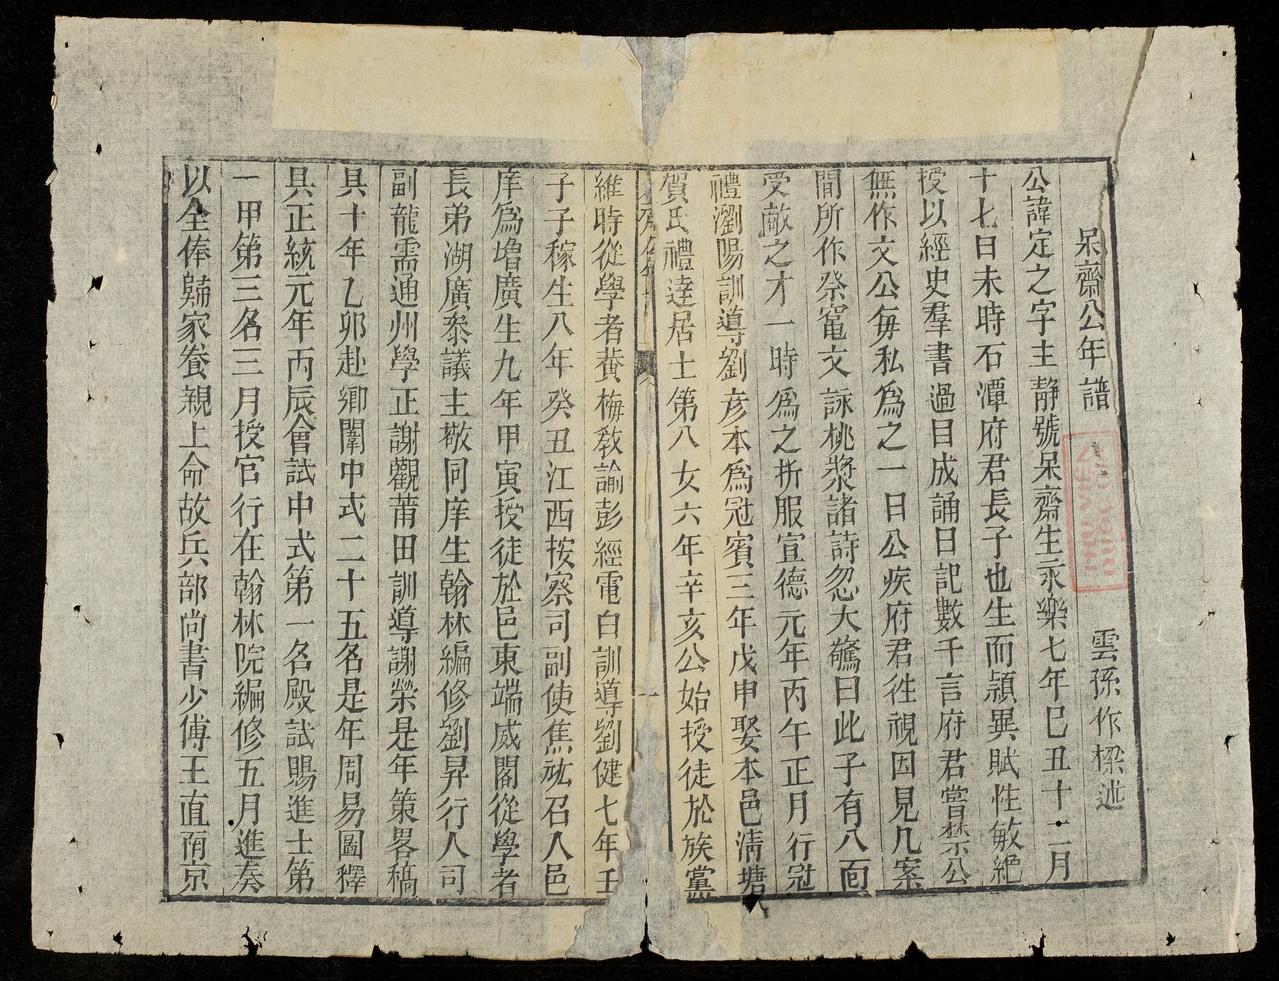 呆齋公年譜
雲孫作樑述
公諱定之字主靜號呆齋生永樂七年巳丑十二月
十七日未時石潭府君長子也生而頴異賦性敏絶
授以經史羣書過目成誦日記數千言府君嘗禁公
無作文公每私爲之一日公疾府君徃視因見几案
間所作祭竃文詠桃漿諸詩忽大驚曰此子有八面
受敵之才一時爲之折服宣德元年丙午正月行冠
禮瀏陽訓導劉彦本爲冠賓三年戊申娶本邑清塘
賀氏禮逹居士第八女六年辛亥公始授徒於族黨
維時從學者黄梅敎諭彭經電白訓導劉健七年壬
子子稼生八年癸丑江西按察司副使焦竑召入邑
庠爲增廣生九年甲寅授徒於邑東端威閣從學者
長弟湖廣叅議主敬同庠生翰林編修劉昇行人司
副龍霈通州學正謝觀莆田訓導謝榮是年策畧稿
具十年乙卯赴鄉闈中式二十五名是年周易圖釋
具正統元年丙辰會試中式第一名殿試賜進士第
一甲第三名三月授官行在翰林院編修五月進奏
以全俸歸家養親上命故兵部尚書少傅王直南京